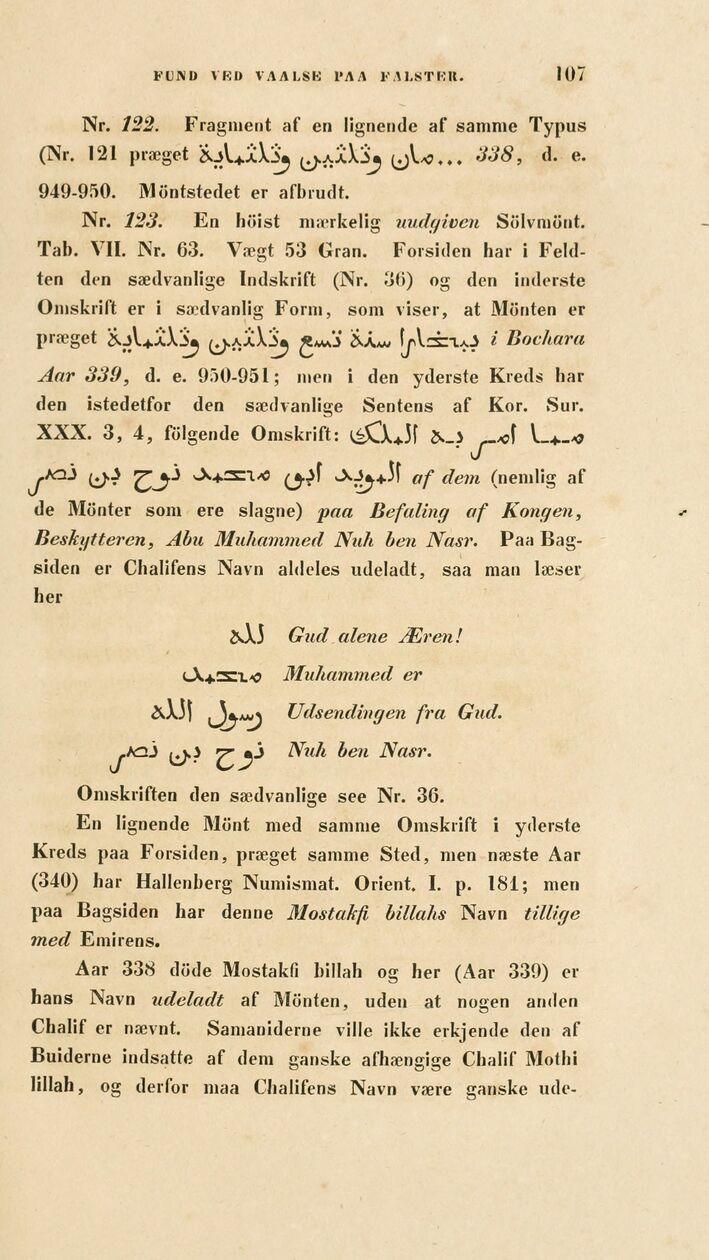 FUND VED VAALSE PAA FALSTER. 107
Nr. 122. Fragment af en lignende af samme Typus
(Nr. 121 præget ...مان وثلثين وثلثماية 338, d. e.
949-950. Möntstedet er afbrudt.
Nr. 123. En höist mærkelig uudgiven Sölvmönt.
Tab. VII. Nr. 63. Vægt 53 Gran. Forsiden har i Feld-
ten den sædvanlige Indskrift (Nr. 36) og den inderste
Omskrift er i sædvanlig Form, som viser, at Mönten er
præget ببخارا سنة تسع وثلثين وثلثماية i Bochara
Aar 339, d. e. 950-951; men i den yderste Kreds har
den istedetfor den sædvanlige Sentens af Kor. Sur.
XXX. 3, 4, fölgende Omskrift: مما امر به الملك
المويد ابو محمد نوح بن نصر af dem (nemlig af
de Mönter som ere slagne) paa Befaling af Kongen,
Beskytteren, Abu Muhammed Nuh ben Nasr. Paa Bag-
siden er Chalifens Navn aldeles udeladt, saa man læser
her
لله Gud alene Æren!
محمد Muhammed er
رسول الله Udsendingen fra Gud.
نوح بن نصر Nuh ben Nasr.
Omskriften den sædvanlige see Nr. 36.
En lignende Mönt med samme Omskrift i yderste
Kreds paa Forsiden, præget samme Sted, men næste Aar
(340) har Hallenberg Numismat. Orient. I. p. 181; men
paa Bagsiden har denne Mostakfi billahs Navn tillige
med Emirens.
Aar 338 döde Mostakfi billah og her (Aar 339) er
hans Navn udeladt af Mönten, uden at nogen anden
Chalif er nævnt. Samaniderne ville ikke erkjende den af
Buiderne indsatte af dem ganske afhængige Chalif Mothi
lillah, og derfor maa Chalifens Navn være ganske ude-